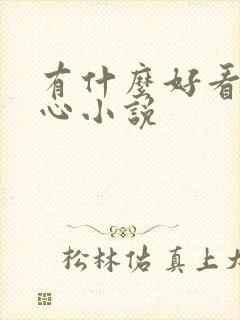 有什麼好看
心小說
松林佑真上大